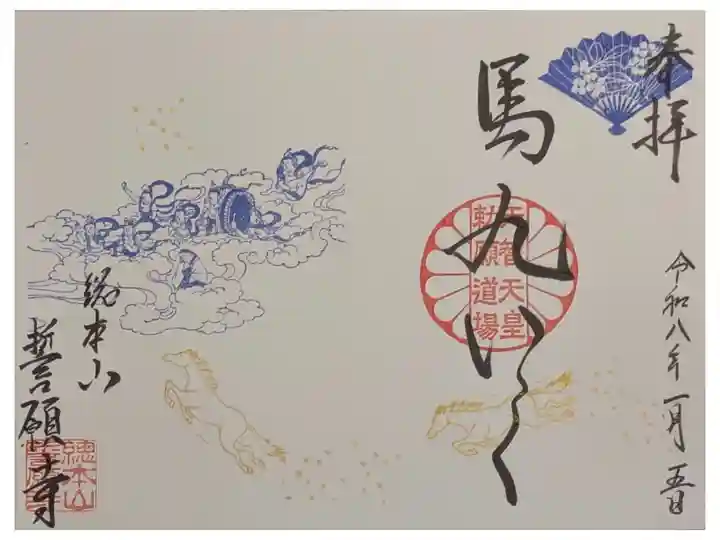 奉拝
令和八年一月五日
馬九いく
天智天皇
勅願道場
総本山
誓願寺
總本山